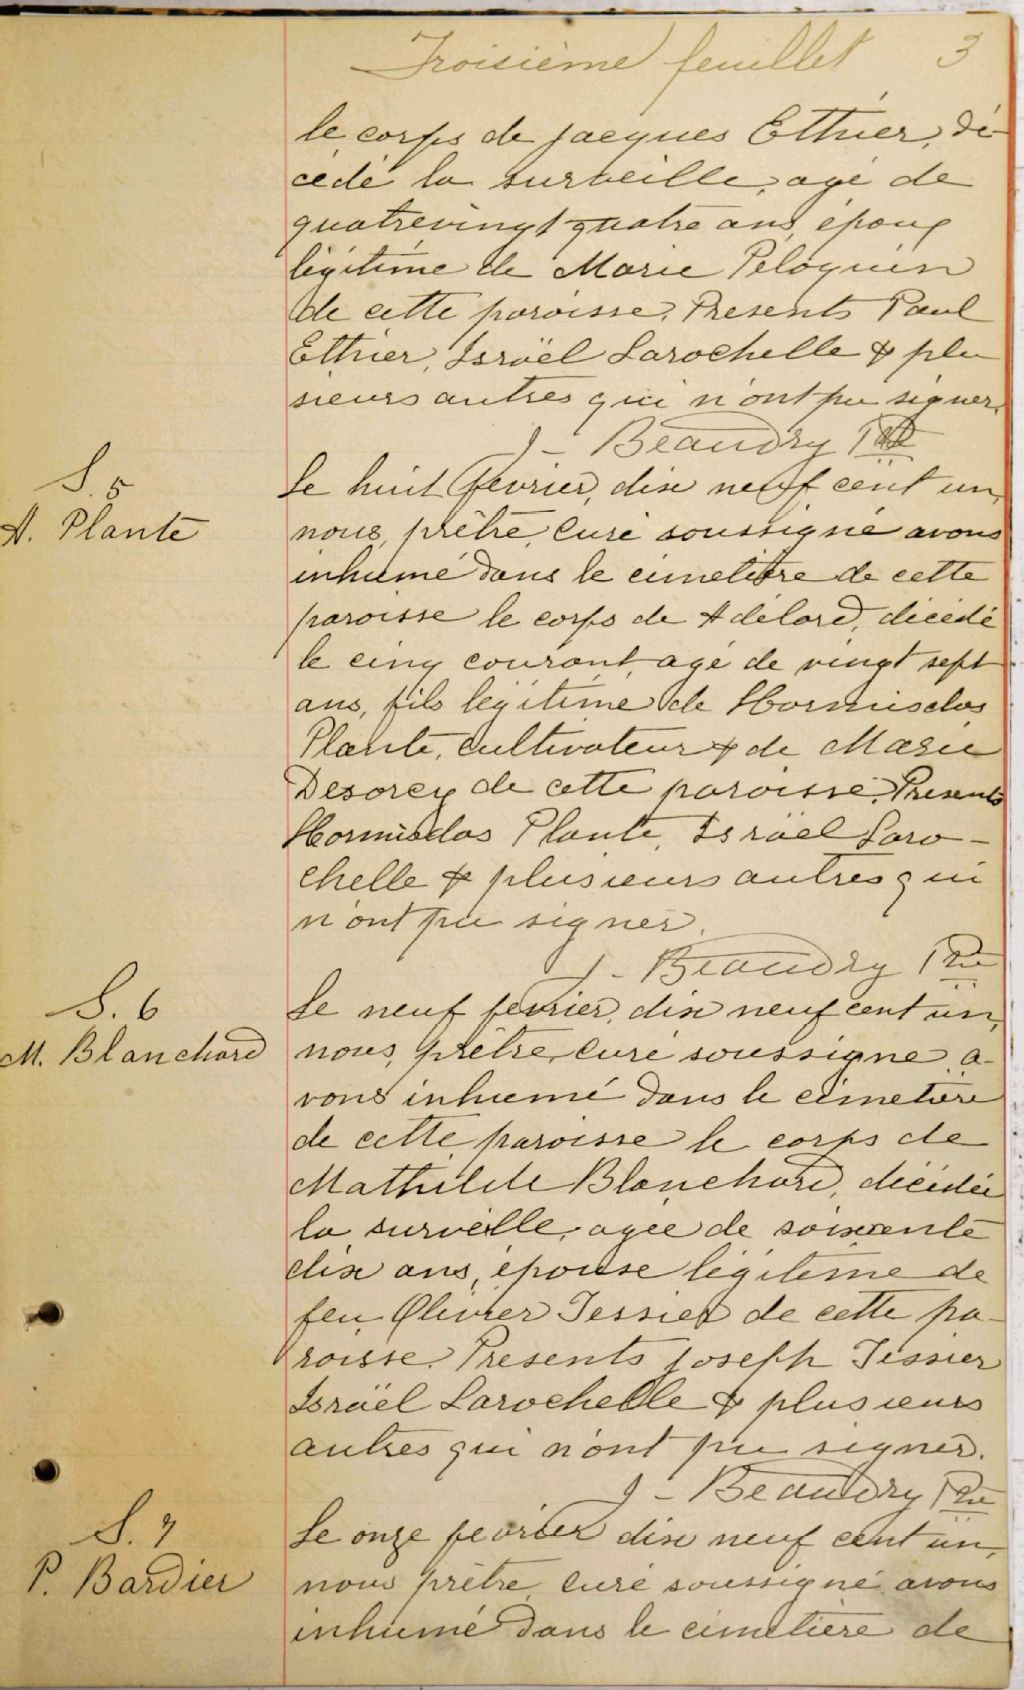 Troisième feuillet 3
le corps de Jacques Ethier, dé-
cédé la surveille, agé de
quatrevingt quatre ans, époux
légitime de Marie Péloquin
de cette paroisse. Présents Paul
Ethier, Israël Larochelle & plu
sieurs autres qui n'ont pu signer.
J - Beaudry Ptre
S. 5
A. Plante
Le huit février, dix neuf cent un,
nous, prêtre, curé soussigné avons
inhumé dans le cimetière de cette
paroisse le corps de Adélard, décédé
le cinq courant, agé de vingt sept
ans, fils légitime de Hormisdas
Plante, cultivateur & de Marie
Desorcy de cette paroisse. Présents
Hormisdas Plante, Israël Laro-
chelle & plusieurs autres qui
n'ont pu signer.
J - Beaudry Ptre
S. 6
M. Blanchard
Le neuf février, dix neuf cent un,
nous, prêtre, curé soussigné a-
vons inhumé dans le cimetière
de cette paroisse le corps de
Mathilde Blanchard, décédée
la surveille, agée de soixante
dix ans, épouse légitime de
feu Olivier Tessier de cette pa-
roisse. Présents Joseph Tessier
Israël Larochelle & plusieurs
autres qui n'ont pu signer.
J - Beaudry Ptre
S. 7
P. Bardier
Le onze février dix neuf cent un,
nous prêtre, curé soussigné avons
inhumé dans le cimetière de